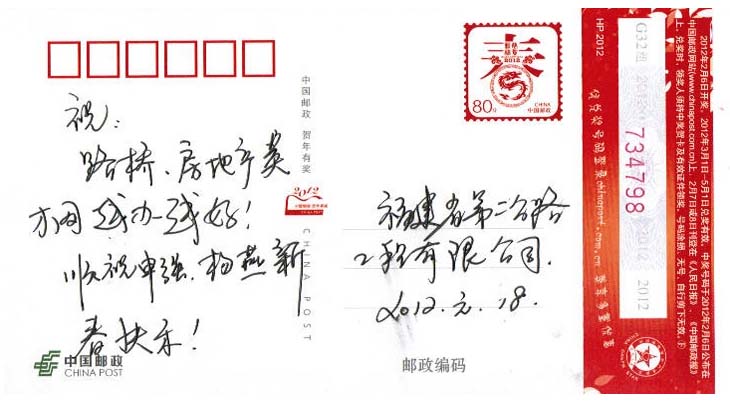 祝:
路桥、房地产英
才网越办越好!
顺祝申强、杨燕新
春快乐!
福建省第二公路
工程有限公司.
2012.元.18.
中国邮政 贺年有奖
2012
CHINA POST
春
2012
80分
CHINA
中国邮政
中国邮政
CHINA POST
邮政编码
HP.2012
G32组 2012
734798
2012
2012
2012年2月6日开奖。2012年3月1日—5月1日兑奖有效。中奖号码于2012年2月6日公布在
中国邮政网站(www.chinapost.com.cn)上,2月7日或8日刊登在《人民日报》、《中国邮政报》
上。兑奖时,领奖人须持中奖贺卡及有效证件领奖。号码涂损、无号、自行剪下无效。